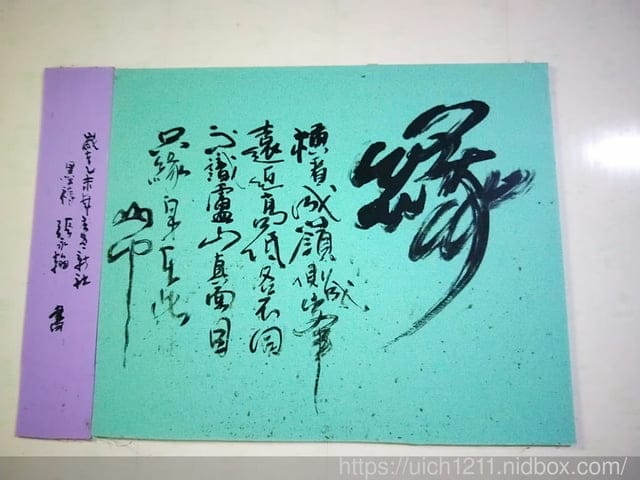 緣
橫看成嶺側成峯
遠近高低各不同
不識盧山真面目
只緣身在此
山中
歲在乙未年新社
張永翰 書
https://uich1211.nidbox.com/